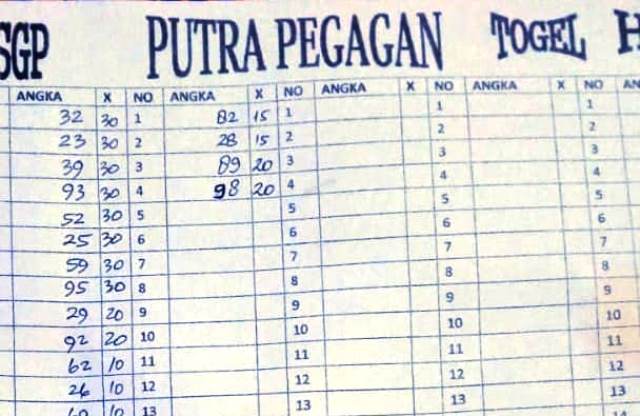 SGP PUTRA PEGAGAN TOGEL H
ANGKA X NO ANGKA X NO ANGKA X NO ANGKA X NO AN
32 30 1 82 15 1 1 1
23 30 2 28 15 2 2 2
39 30 3 89 20 3 3 3
93 30 4 98 20 4 4 4
52 30 5 5 5 5
25 30 6 6 6 6
59 30 7 7 7 7
95 30 8 8 8 8
29 20 9 9 9 9
92 20 10 10 10 10
62 10 11 11 11 11
26 10 12 12 12 12
10 13 13 13 13